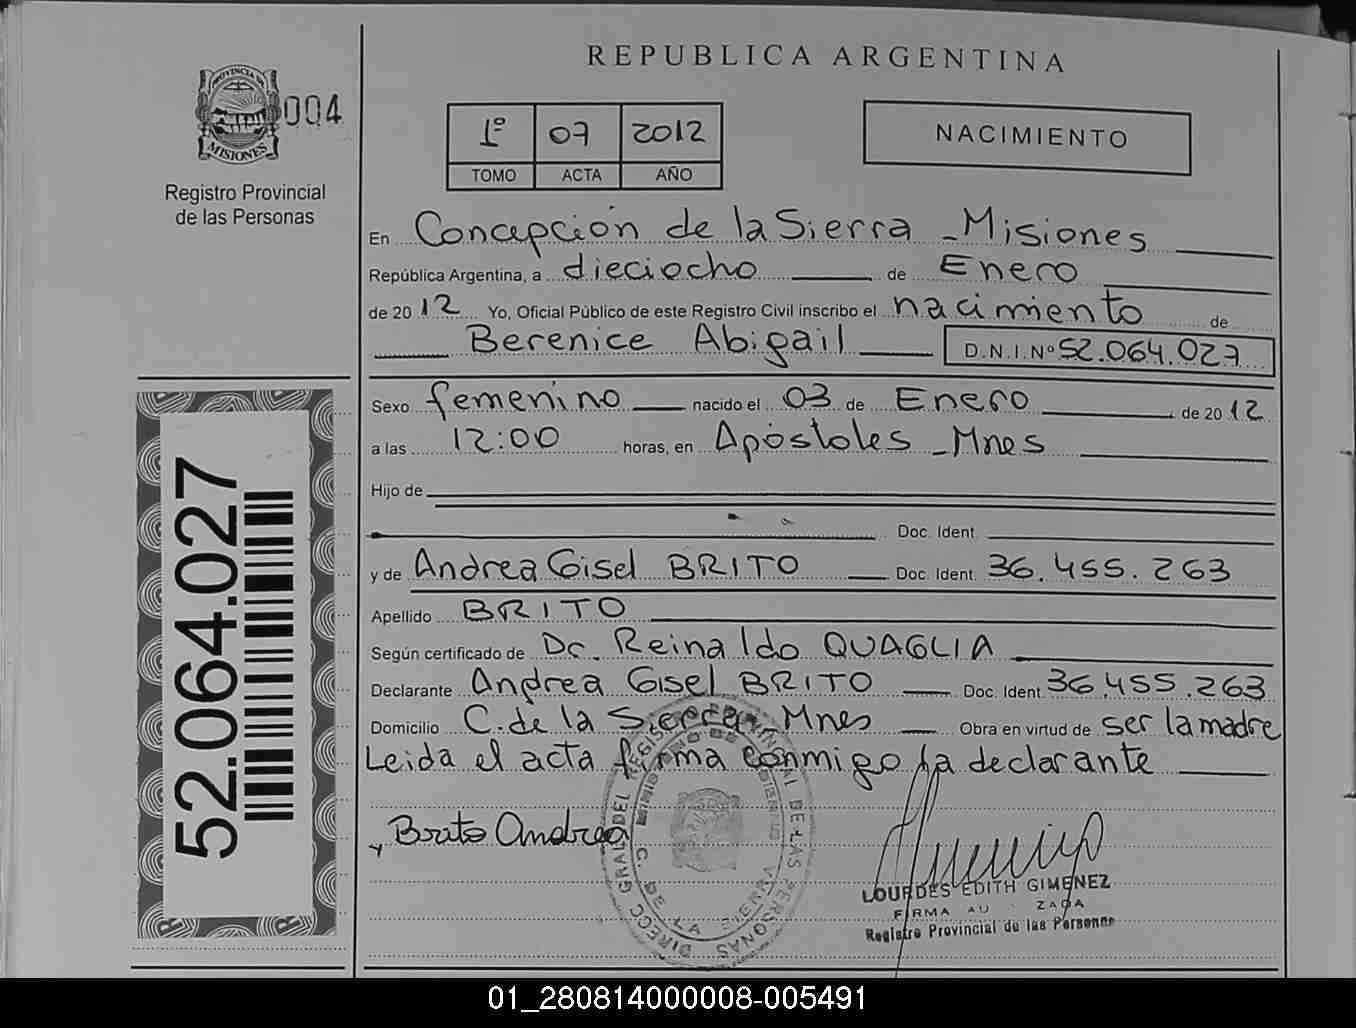 REPUBLICA ARGENTINA
PROVINCIA DE
MISIONES
004
Registro Provincial
de las Personas
1º 07 2012
TOMO ACTA AÑO
NACIMIENTO
En Concepción de la Sierra - Misiones
República Argentina, a dieciocho de Enero
de 2012 Yo, Oficial Público de este Registro Civil inscribo el nacimiento de
Berenice Abigail D.N.I.Nº 52.064.027
Sexo femenino nacido el 03 de Enero de 2012
a las 12:00 horas, en Apóstoles - Mnes
Hijo de
Doc. Ident.
y de Andrea Gisel BRITO Doc. Ident. 36.455.263
Apellido BRITO
Según certificado de Dr. Reinaldo QUAGLIA
Declarante Andrea Gisel BRITO Doc. Ident. 36.455.263
Domicilio C. de la Sierra - Mnes Obra en virtud de ser la madre
Leida el acta firma conmigo la declarante
Brito Andrea
DIRECC GRAL DEL REGISTRO PROVINCIAL DE LAS PERSONAS
C. DE LA SIERRA
LOURDES EDITH GIMENEZ
FIRMA
Registro Provincial de las Personas
52.064.027
01_280814000008-005491